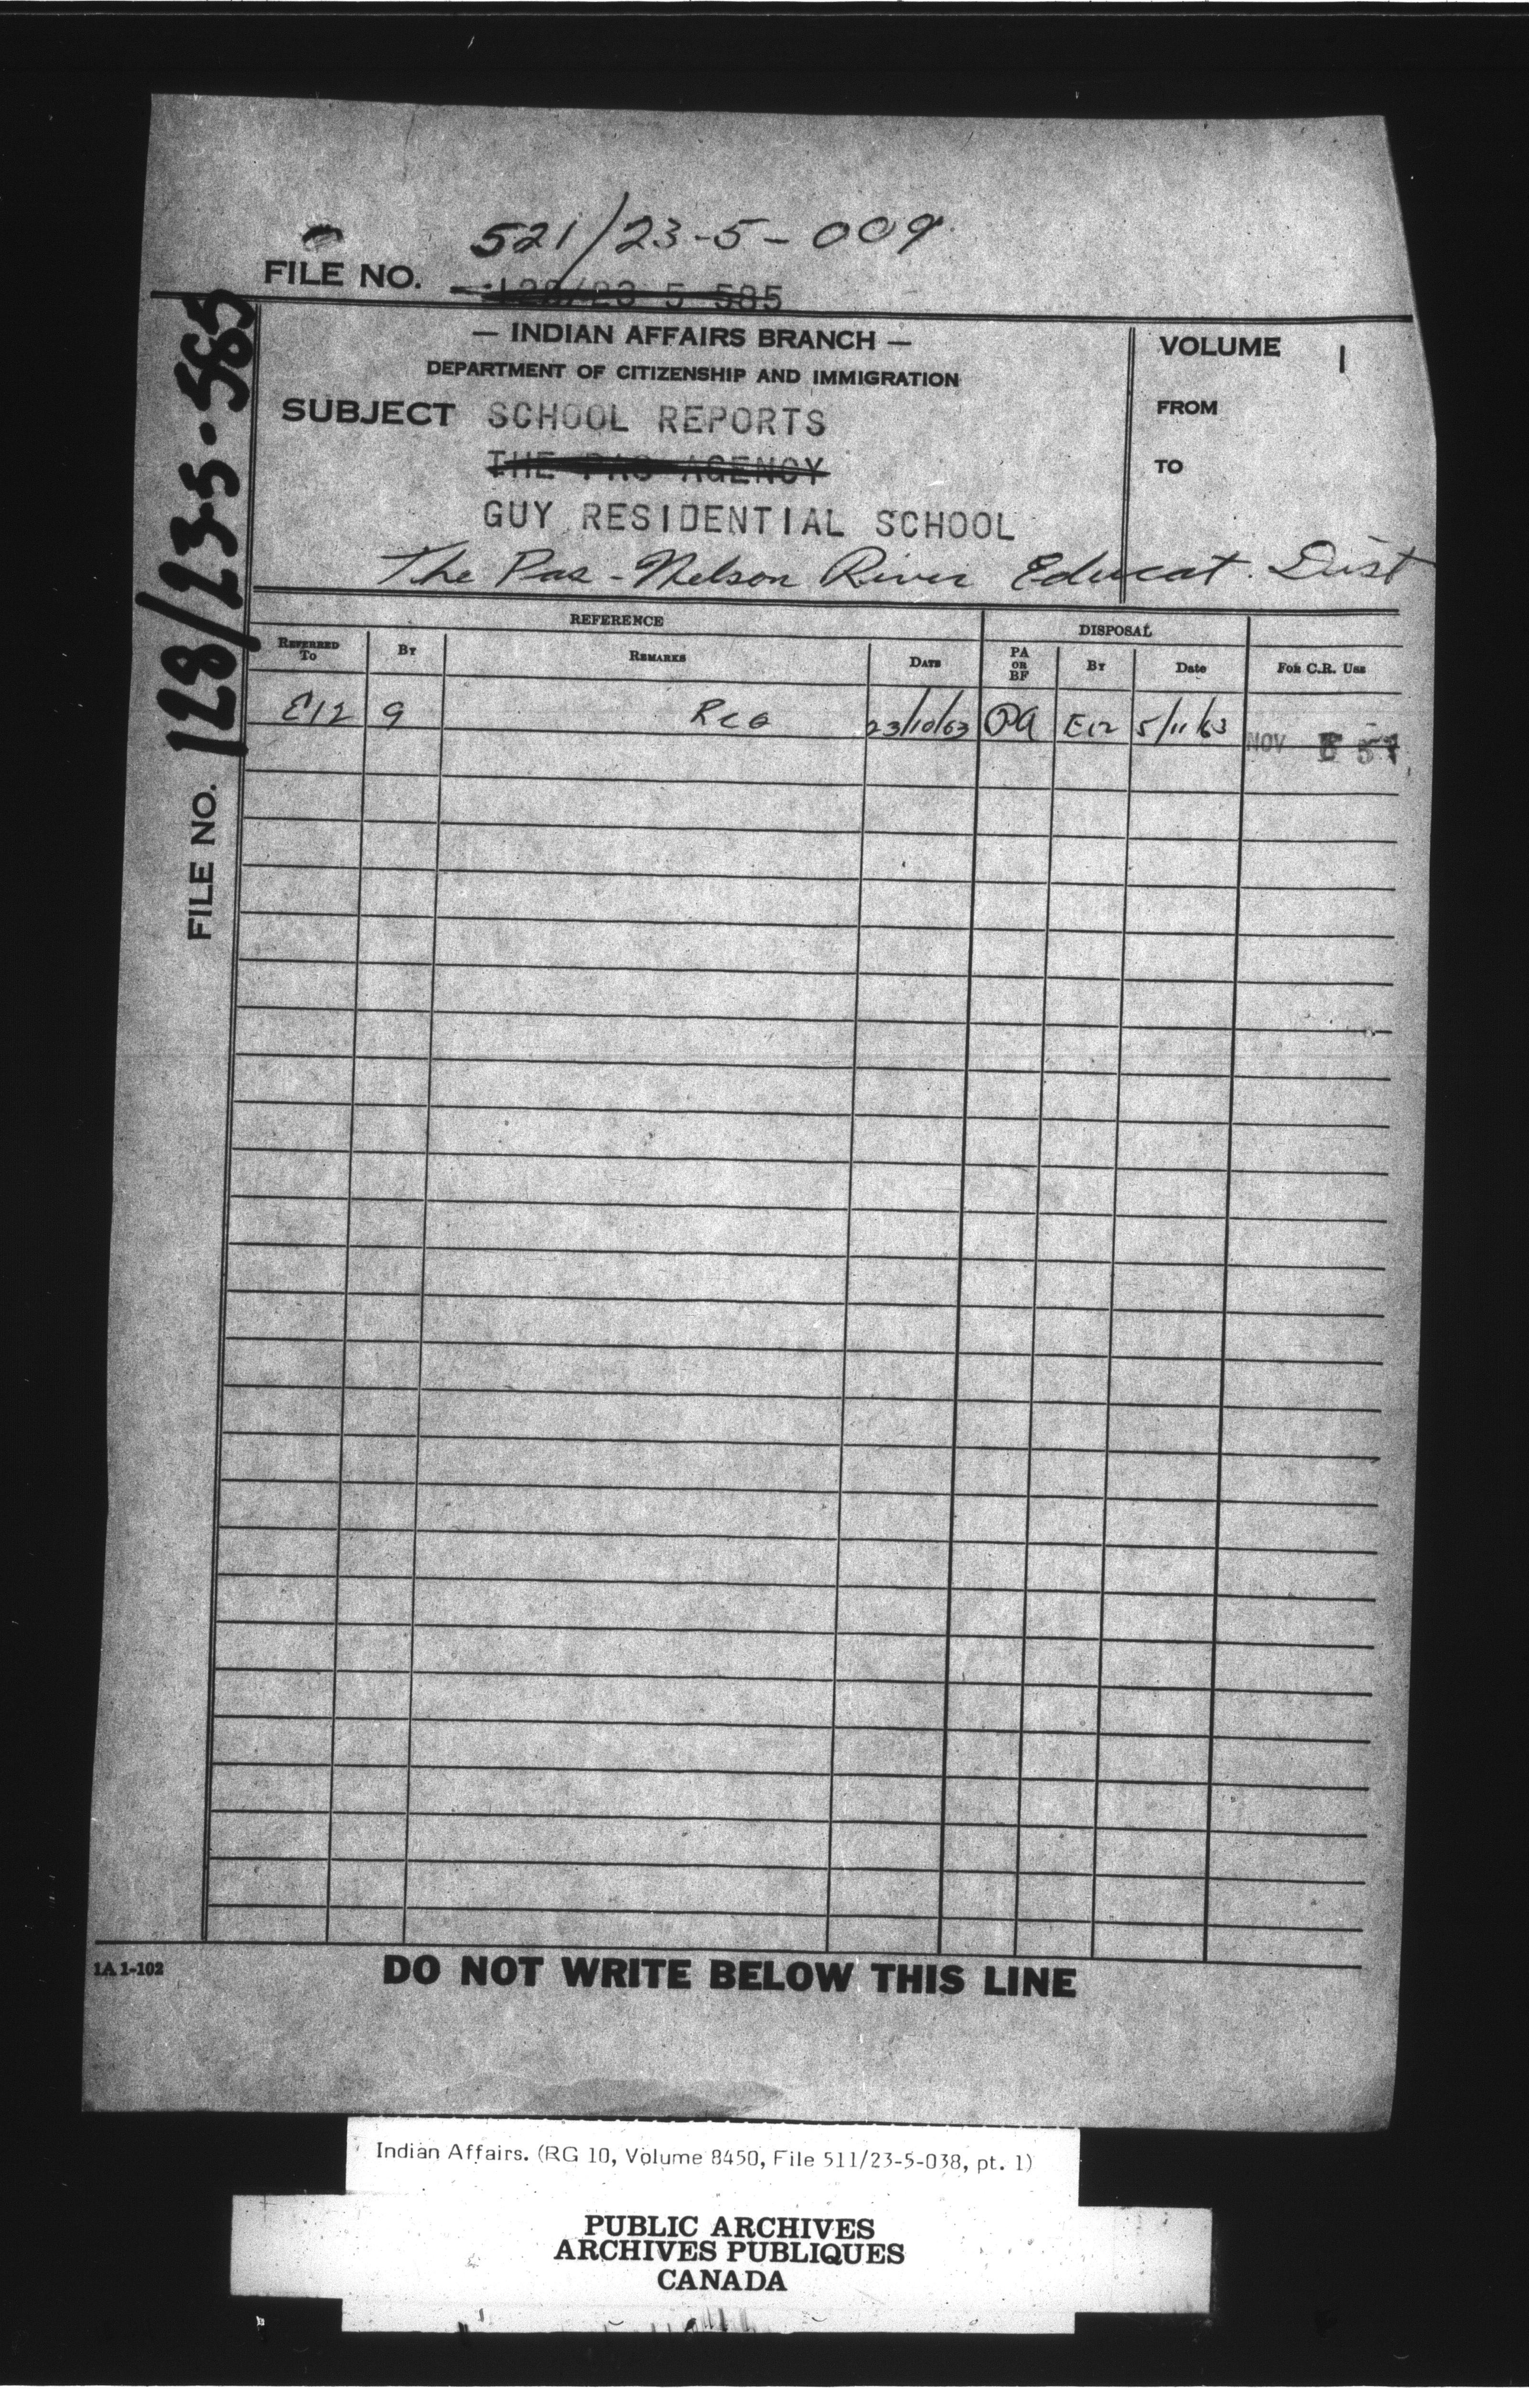 521/23-5-009
FILE NO. 128/23-5-585
— INDIAN AFFAIRS BRANCH —
DEPARTMENT OF CITIZENSHIP AND IMMIGRATION
SUBJECT SCHOOL REPORTS
THE PAS AGENCY
GUY RESIDENTIAL SCHOOL
The Pas - Nelson River Educat. Dist
VOLUME 1
FROM
TO
FILE NO. 128/23-5-585
REFERENCE DISPOSAL
REFERRED TO BY REMARKS DATE PA OR BF BY Date FOR C.R. USE
E12 9 23/10/63 PA E12 5/11/63 NOV
1A 1-102
DO NOT WRITE BELOW THIS LINE
Indian Affairs. (RG 10, Volume 8450, File 511/23-5-038, pt. 1)
PUBLIC ARCHIVES
ARCHIVES PUBLIQUES
CANADA